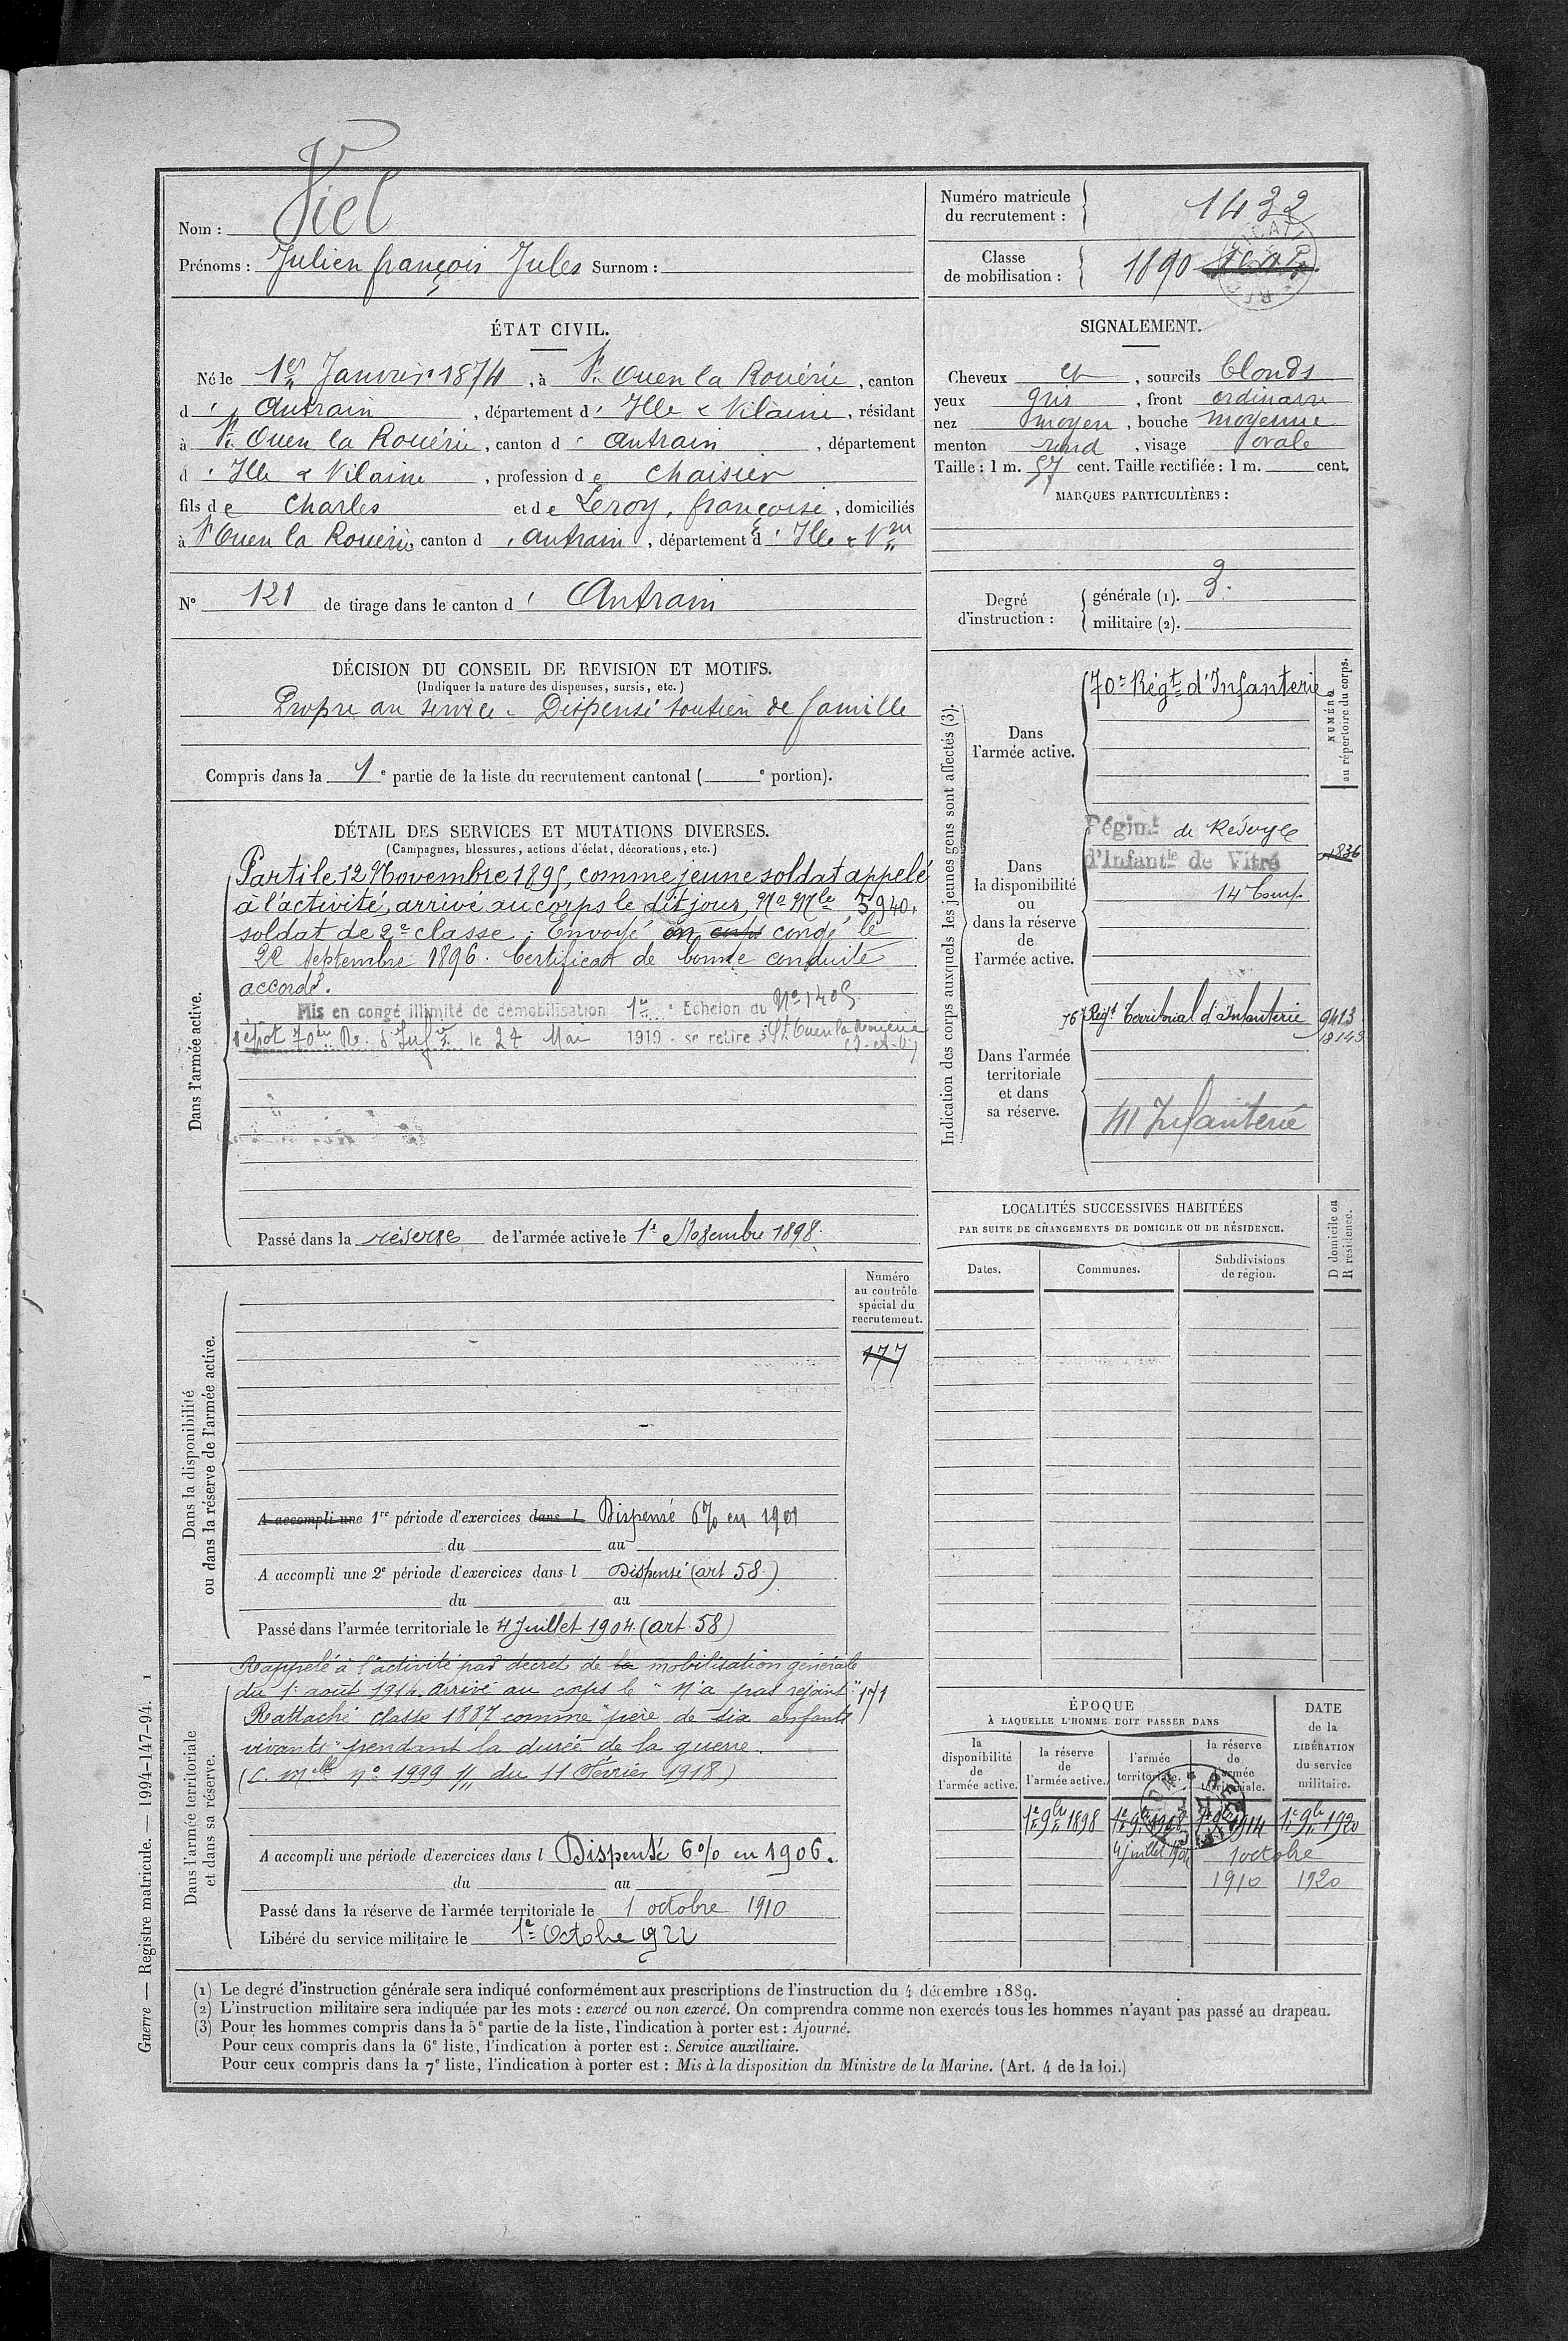 Nom : Viel
Prénoms : Julien françois Jules Surnom :
Numéro matricule
du recrutement : 1432
Classe
de mobilisation : 1890
ÉTAT CIVIL.
Né le 1er Janvier 1874, à St. Ouen la Rouërie, canton
d' Antrain, département d' Ille & Vilaine, résidant
à St. Ouen la Rouërie, canton d' Antrain, département
d' Ille & Vilaine, profession de chaisier
fils de Charles et de Leroy, françoise, domiciliés
à St Ouen la Rouërie canton d' Antrain, département d' Ille & Vne
N° 121 de tirage dans le canton d' Antrain
SIGNALEMENT.
Cheveux et, sourcils blonds
yeux gris, front ordinaire
nez moyen, bouche moyenne
menton rond, visage ovale
Taille : 1 m. 57 cent. Taille rectifiée : 1 m. cent.
MARQUES PARTICULIÈRES :
Degré
d'instruction :
générale (1). 3.
militaire (2).
DÉCISION DU CONSEIL DE REVISION ET MOTIFS.
(Indiquer la nature des dispenses, sursis, etc.)
Propre au service - Dispensé soutien de famille
Compris dans la 1e partie de la liste du recrutement cantonal ( e portion).
DÉTAIL DES SERVICES ET MUTATIONS DIVERSES.
(Campagnes, blessures, actions d'éclat, décorations, etc.)
Dans l'armée active.
Parti le 12 Novembre 1895, comme jeune soldat appelé
à l'activité, arrivé au corps le dit jour, No Mle 5940,
soldat de 2e classe. Envoyé en congé le
22 Septembre 1896. Certificat de bonne conduite
accordé.
Mis en congé illimité de démobilisation 1er Echelon du No 1405
dépôt 70e R. d'Infie le 27 Mai 1919 - se retire à St Ouen la Rouerie
(I-et-V)
Passé dans la réserve de l'armée active le 1er Novembre 1898.
Indication des corps auxquels les jeunes gens sont affectés (3).
NUMÉRO
au répertoire du corps.
Dans
l'armée active.
70e Régt d'Infanterie
Dans
la disponibilité
ou
dans la réserve
de
l'armée active.
Régimt de Réserve
d'Infantie de Vitré
14e Comp.
1836
Dans l'armée
territoriale
et dans
sa réserve.
76e Régt Territorial d'Infanterie 9413
41 Infanterie
LOCALITÉS SUCCESSIVES HABITÉES
PAR SUITE DE CHANGEMENTS DE DOMICILE OU DE RÉSIDENCE.
Dates.
Communes.
Subdivisions
de région.
D domicile ou
R résidence.
Numéro
au contrôle
spécial du
recrutement.
177
Dans la disponibilité
ou dans la réserve de l'armée active.
A accompli une 1re période d'exercices dans l Dispensé 6% en 1901
du au
A accompli une 2e période d'exercices dans l Dispensé (art 58.)
du au
Passé dans l'armée territoriale le 4 Juillet 1904 (art 58)
Dans l'armée territoriale
et dans sa réserve.
Rappelé à l'activité par décret de la mobilisation générale
du 1er août 1914. arrivé au corps le "n'a pas rejoint"
Rattaché classe 1887 comme "père de six enfants
vivants" pendant la durée de la guerre.
(C. Mlle no 1999 du 11 Février 1918)
A accompli une période d'exercices dans l Dispensé 6% en 1906.
du au
Passé dans la réserve de l'armée territoriale le 1 octobre 1910
Libéré du service militaire le 1er Octobre 922
ÉPOQUE
À LAQUELLE L'HOMME DOIT PASSER DANS
la
disponibilité
de
l'armée active.
la réserve
de
l'armée active.
l'armée
territoriale.
la réserve
de
l'armée
territoriale.
DATE
de la
LIBÉRATION
du service
militaire.
1er 9bre 1898 1er 9bre 1908 1er 9bre 1914 1er 9bre 1920
4 juillet 1904 1 octobre
1910 1920
(1) Le degré d'instruction générale sera indiqué conformément aux prescriptions de l'instruction du 4 décembre 1889.
(2) L'instruction militaire sera indiquée par les mots : exercé ou non exercé. On comprendra comme non exercés tous les hommes n'ayant pas passé au drapeau.
(3) Pour les hommes compris dans la 5e partie de la liste, l'indication à porter est : Ajourné.
Pour ceux compris dans la 6e liste, l'indication à porter est : Service auxiliaire.
Pour ceux compris dans la 7e liste, l'indication à porter est : Mis à la disposition du Ministre de la Marine. (Art. 4 de la loi.)
Guerre — Registre matricule. — 1994-147-94. 1